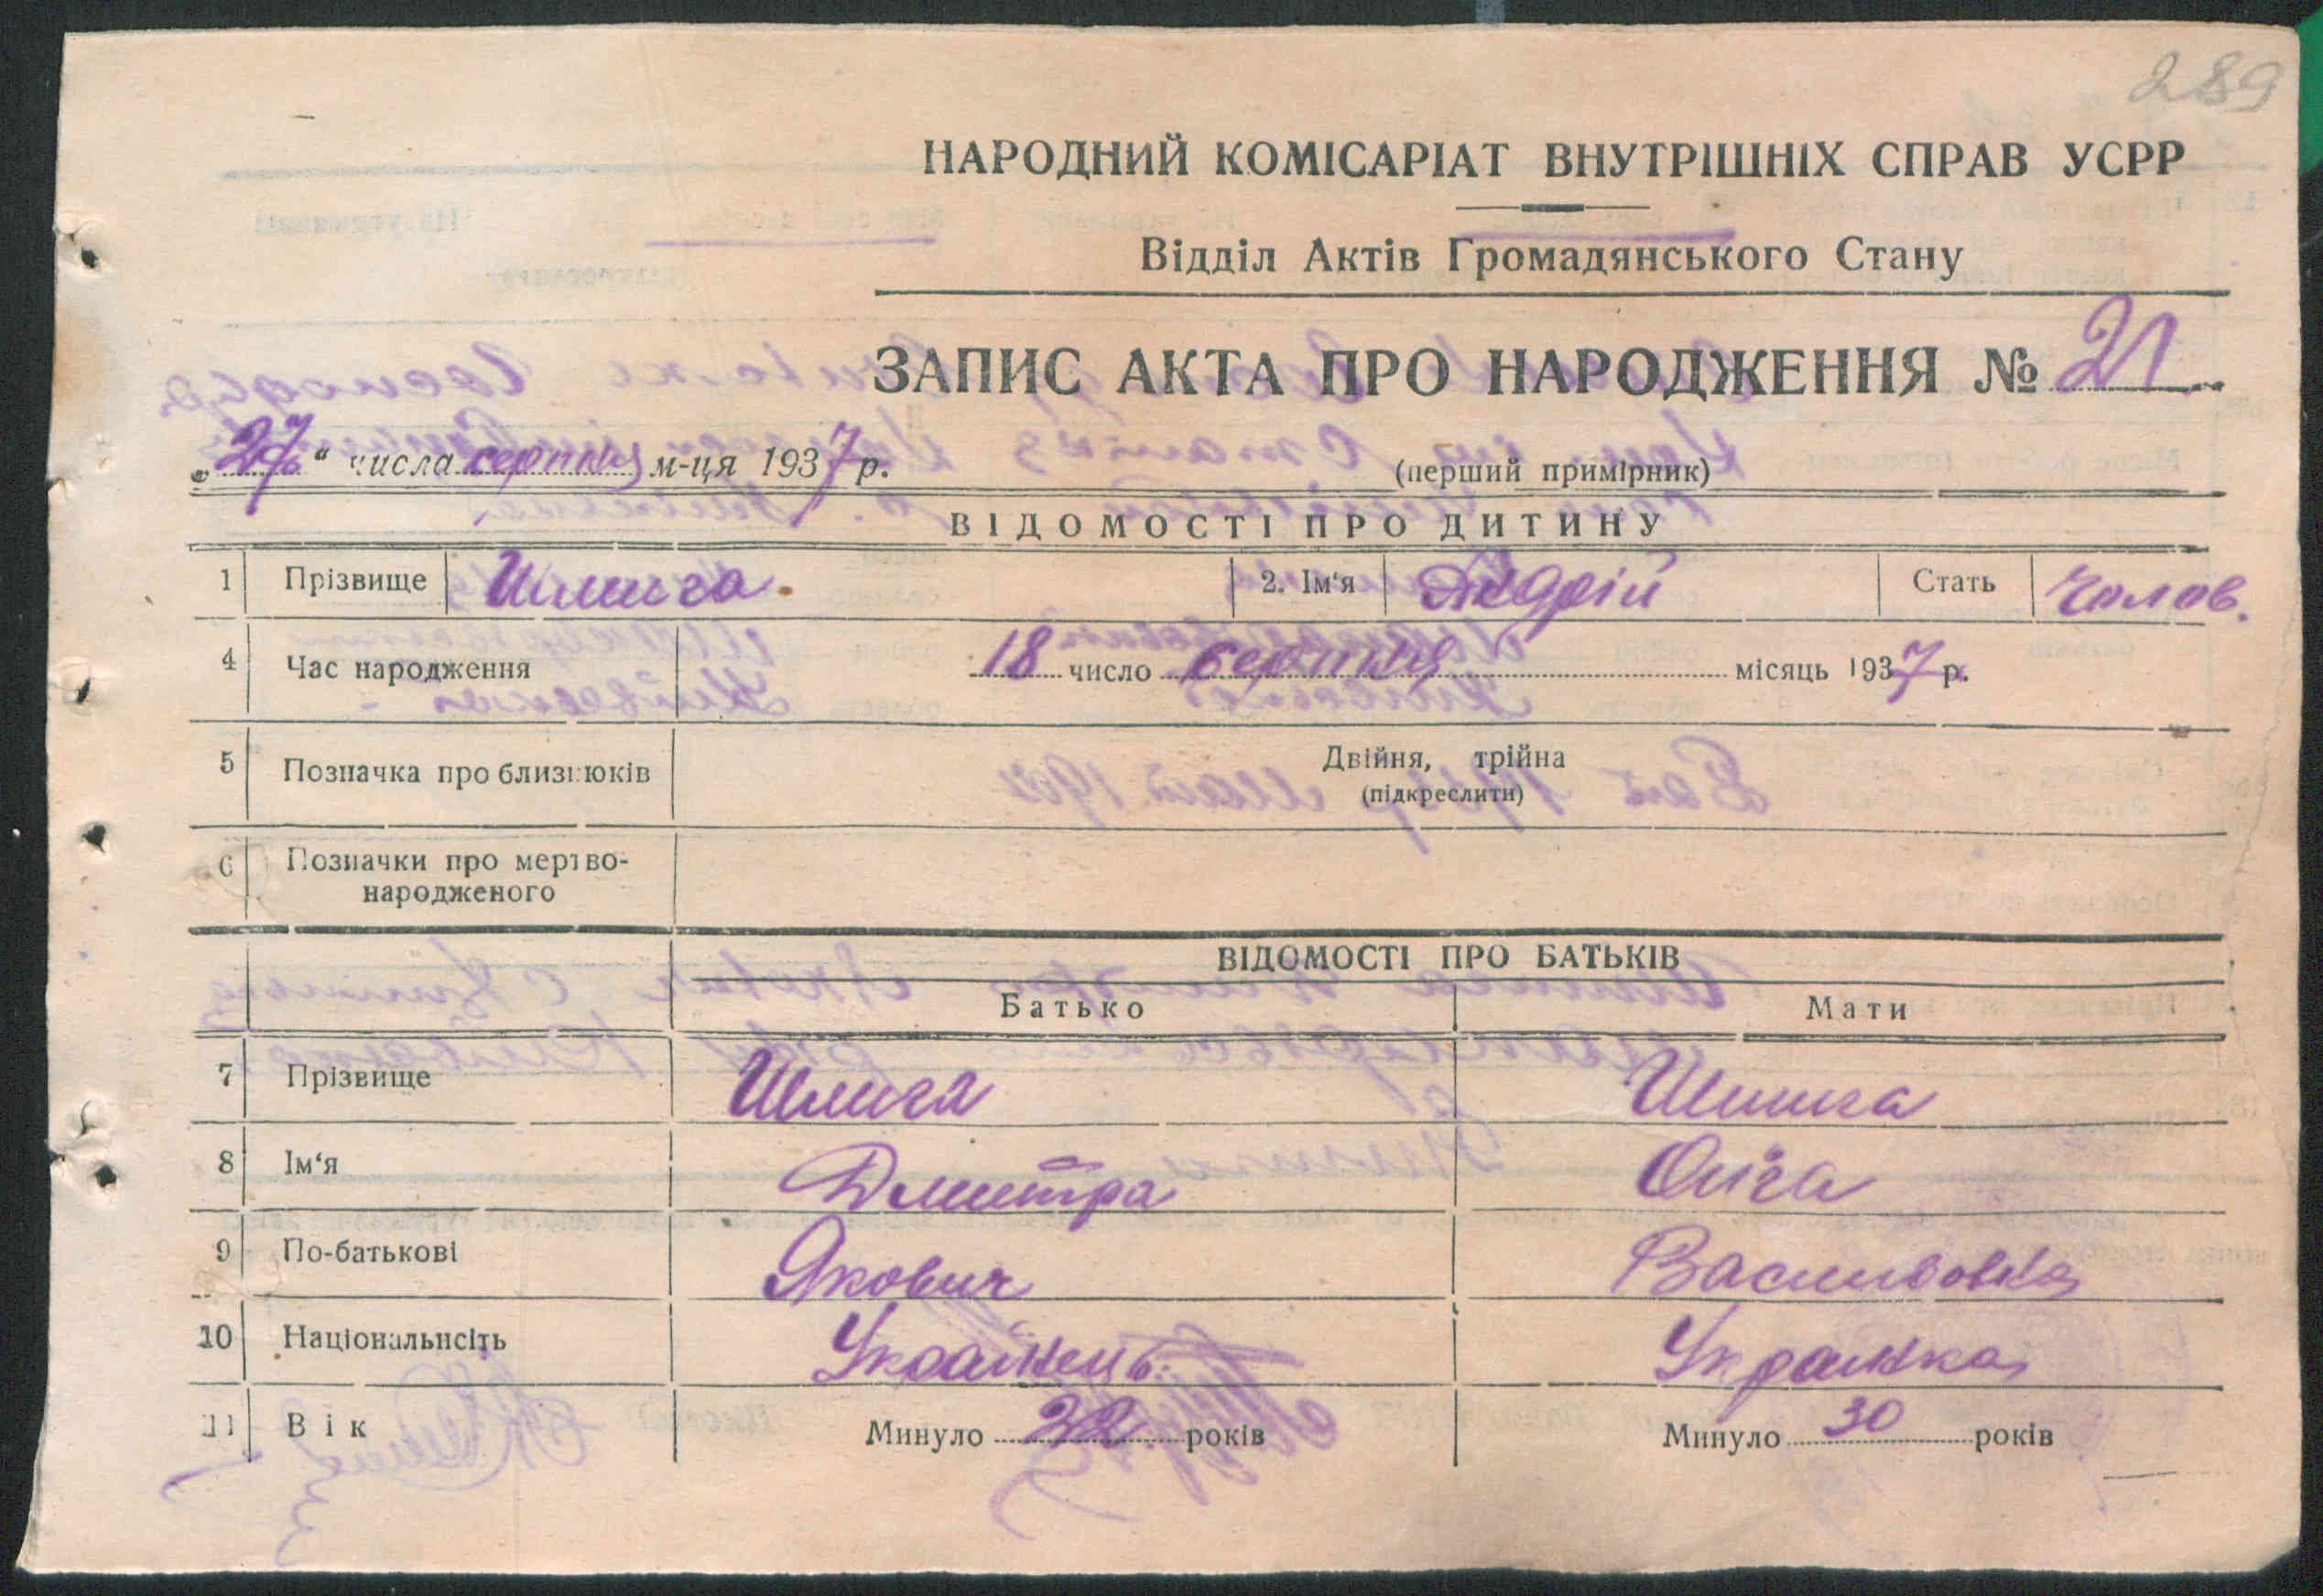 289
НАРОДНИЙ КОМІСАРІАТ ВНУТРІШНІХ СПРАВ УСРР
Відділ Актів Громадянського Стану
ЗАПИС АКТА ПРО НАРОДЖЕННЯ № 21
„27“ числа серпня м-ця 1937 р. (перший примірник)
ВІДОМОСТІ ПРО ДИТИНУ
1 Прізвище Шмига. 2. Ім‘я Андрій Стать Чолов.
4 Час народження 18 число серпня місяць 1937 р.
5 Позначка про близнюків Двійня, трійна
(підкреслити)
6 Позначки про мертво-
народженого
ВІДОМОСТІ ПРО БАТЬКІВ
Батько Мати
7 Прізвище Шмига Шмига
8 Ім‘я Дмитра Ольга
9 По-батькові Якович Василівна
10 Національнсіть Українець Украінка
11 Вік Минуло 32 років Минуло 30 років